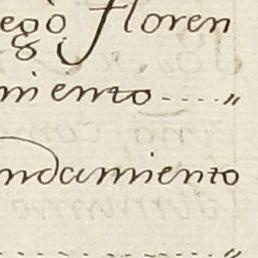 egò floren
miento ..... "
ndamiento
.............. "